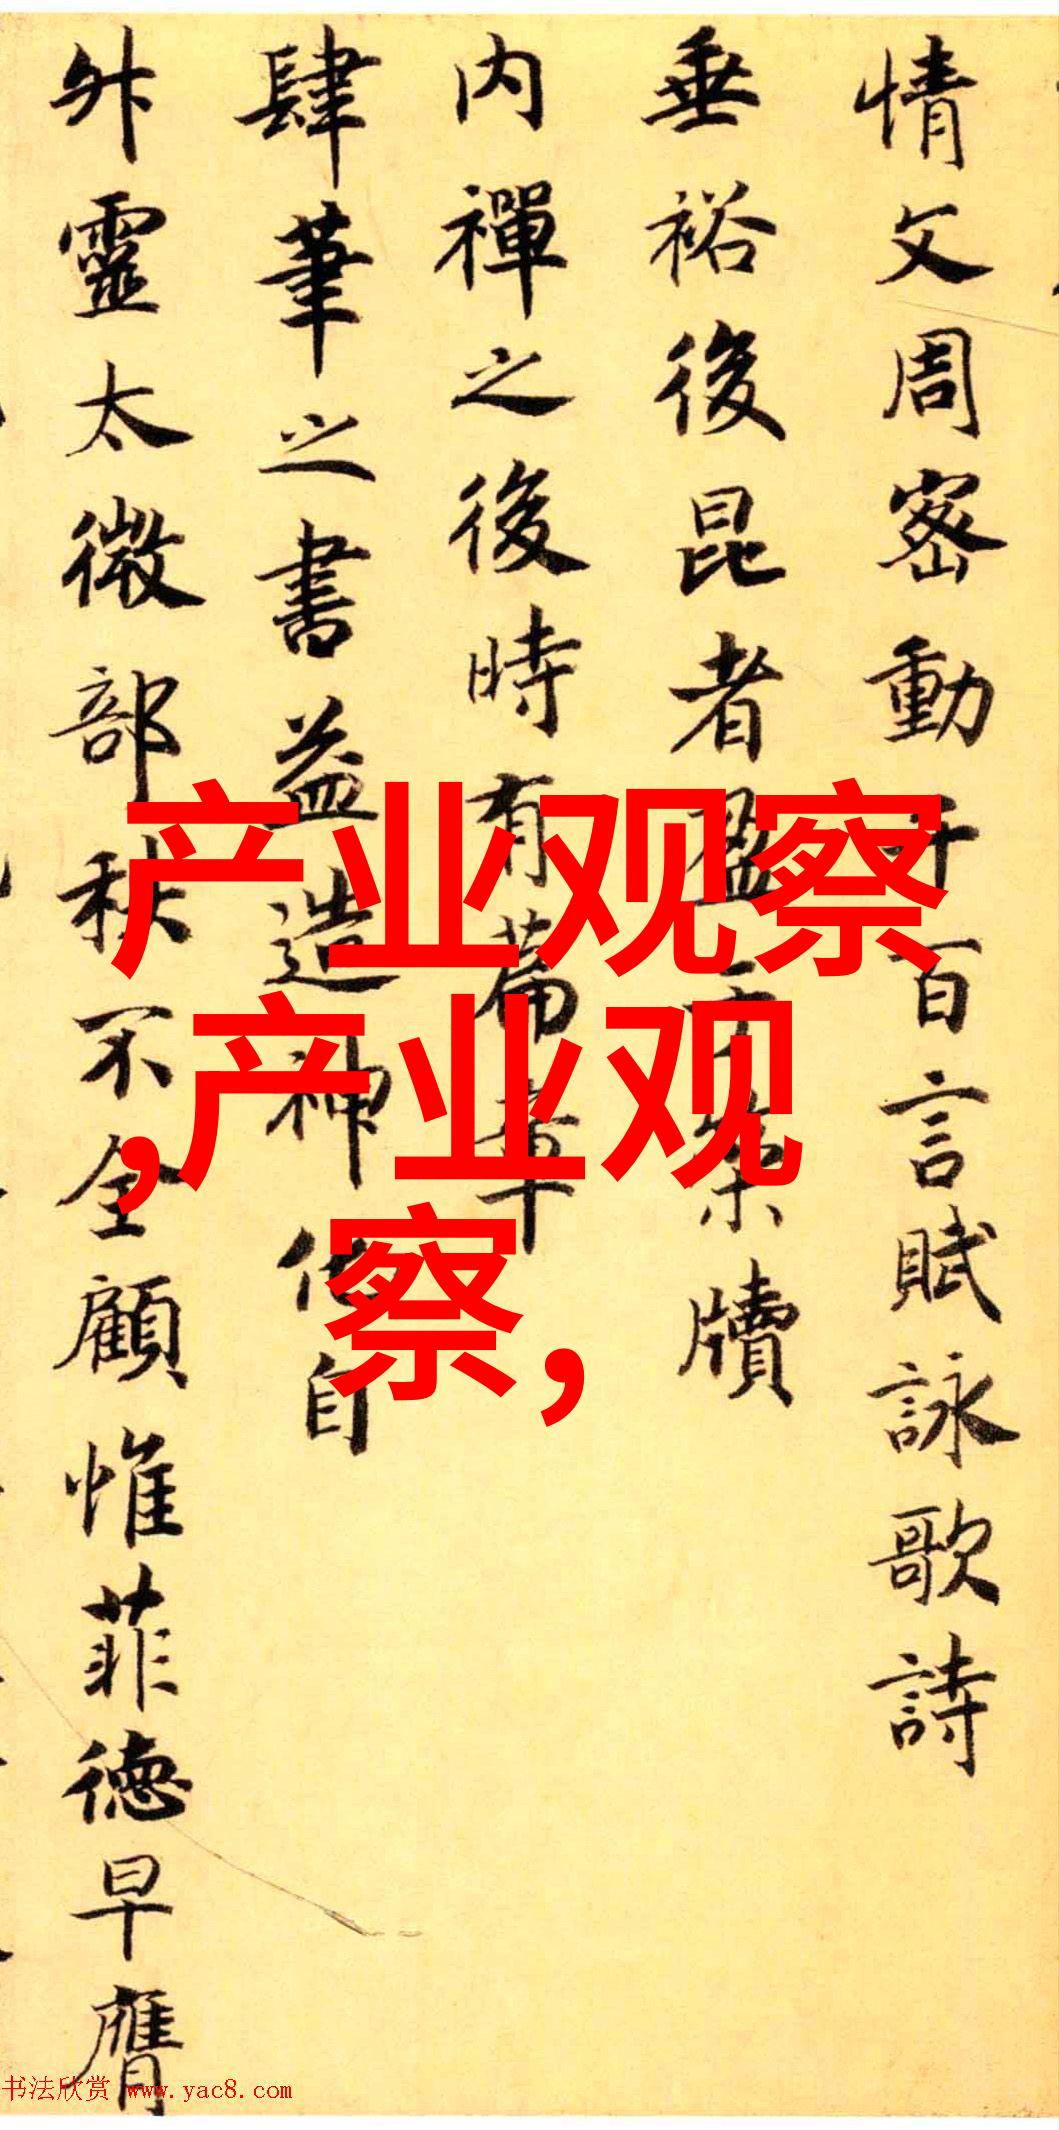 情文周密動千百言賦詠歌詩
垂裕後昆者盈于策牘
内禪之後時有篇章
肆筆之書益造神化自
外靈太微部秩不全顧惟菲德早膺
产业观察
,产业观
察,
书法欣赏 www.yac8.com